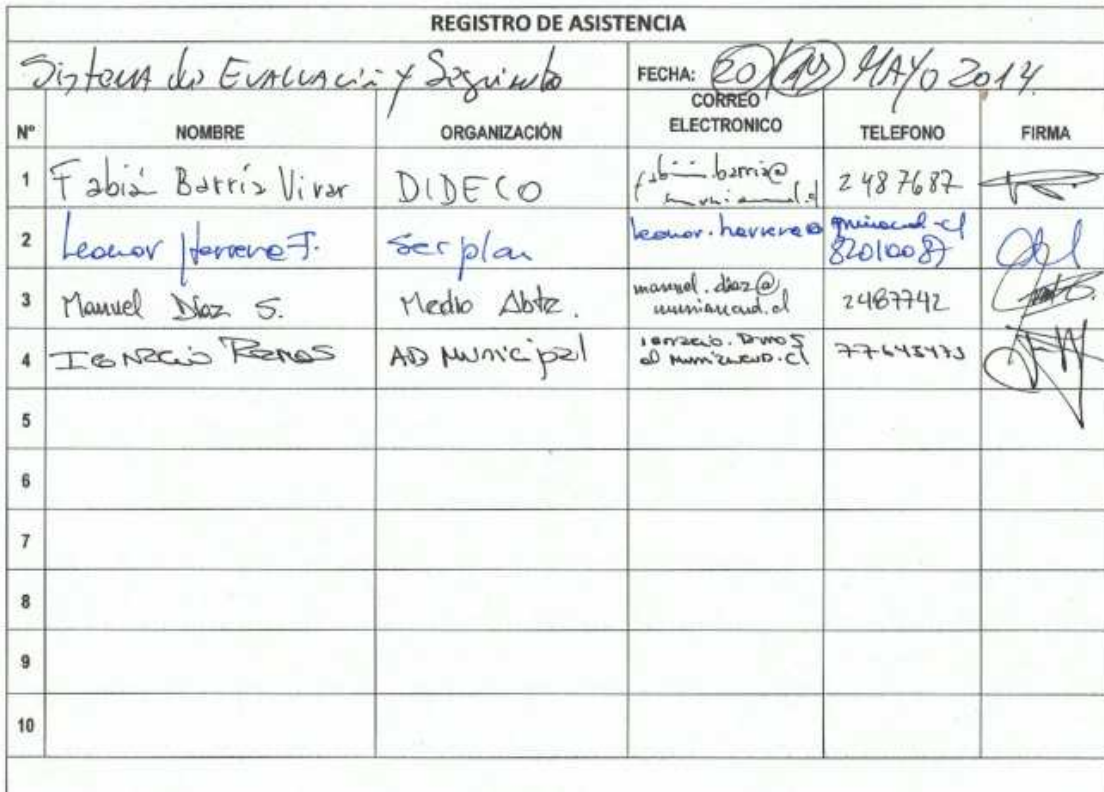 REGISTRO DE ASISTENCIA
Sistema de Evaluación y Seguimiento
FECHA: 20 MAYO 2014
N° NOMBRE ORGANIZACIÓN CORREO ELECTRONICO TELEFONO FIRMA
1 Fabián Barría Vivar DIDECO 2487687
2 Leonor Herrera F. Serplan leonor.herrera@ 82010087
3 Manuel Díaz S. Medio Abte. manuel.diaz@ muniancud.cl 2487742
4 Ignacio AD Municipal
5
6
7
8
9
10